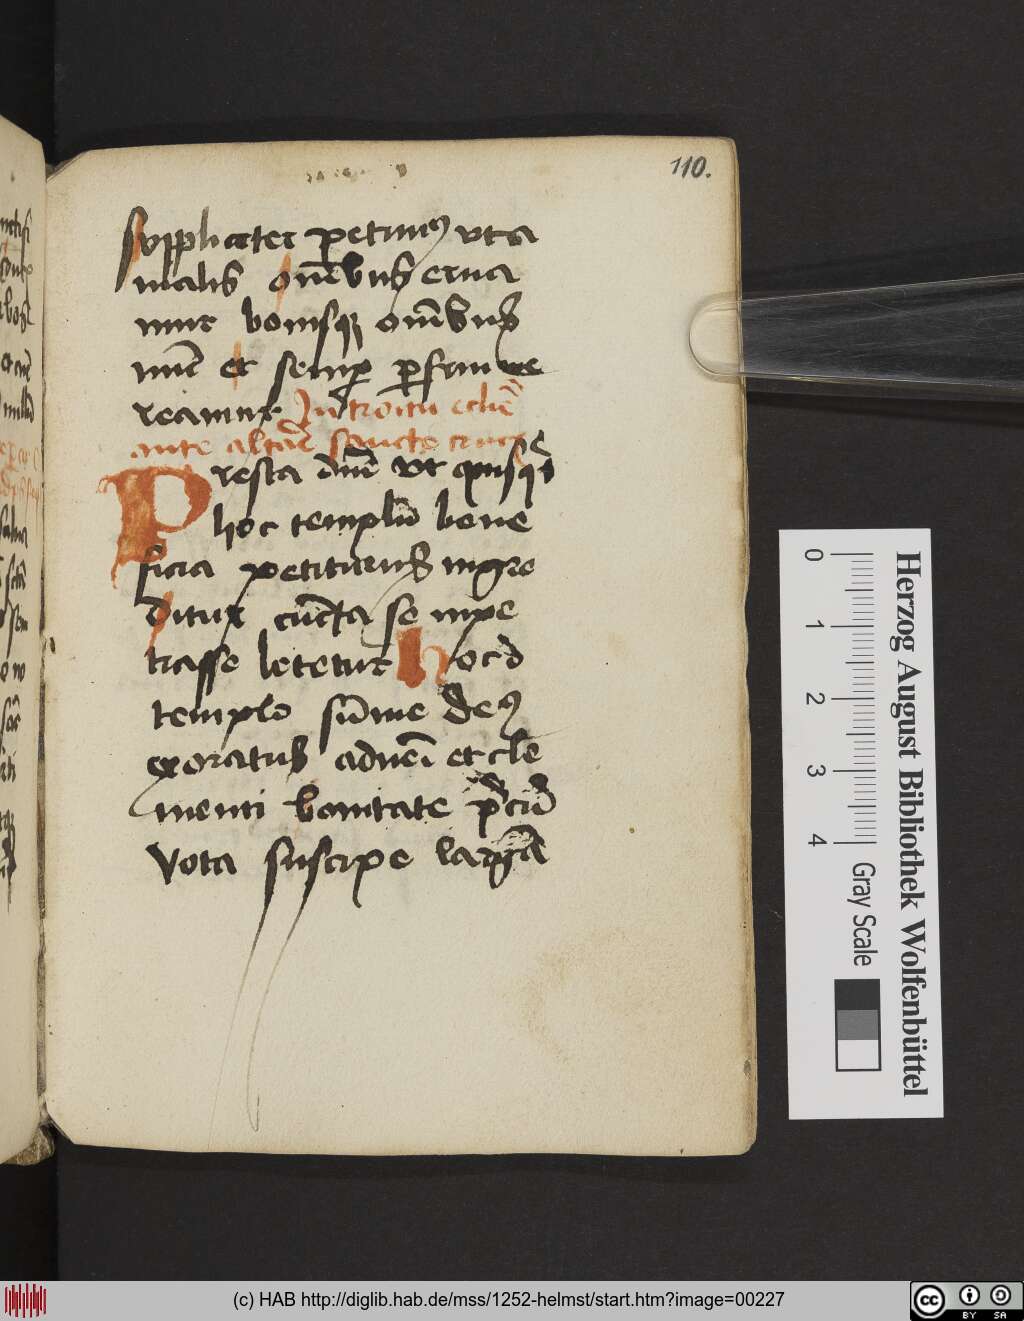 110.
suppliciter petimꝰ vt a
malis om̄ibus erua
mur bonisqꝫ om̄ibus
nūc et semꝑ ꝑfrui me
reamur Introitu ecclīe
ante altar̄ sancte crucꝭ
Presta dn̄e vt quisqͥs
hoc templū bene
ficia petiturus ingre
ditur cūcta se inpe
trasse letetur hoc ī
templo sūme deꝰ
exoratus adueī et cle
menti bonitate p̄cū
vota suscipe largā
Herzog August Bibliothek Wolfenbüttel
0 1 2 3 4
Gray Scale
(c) HAB http://diglib.hab.de/mss/1252-helmst/start.htm?image=00227
cc BY SA